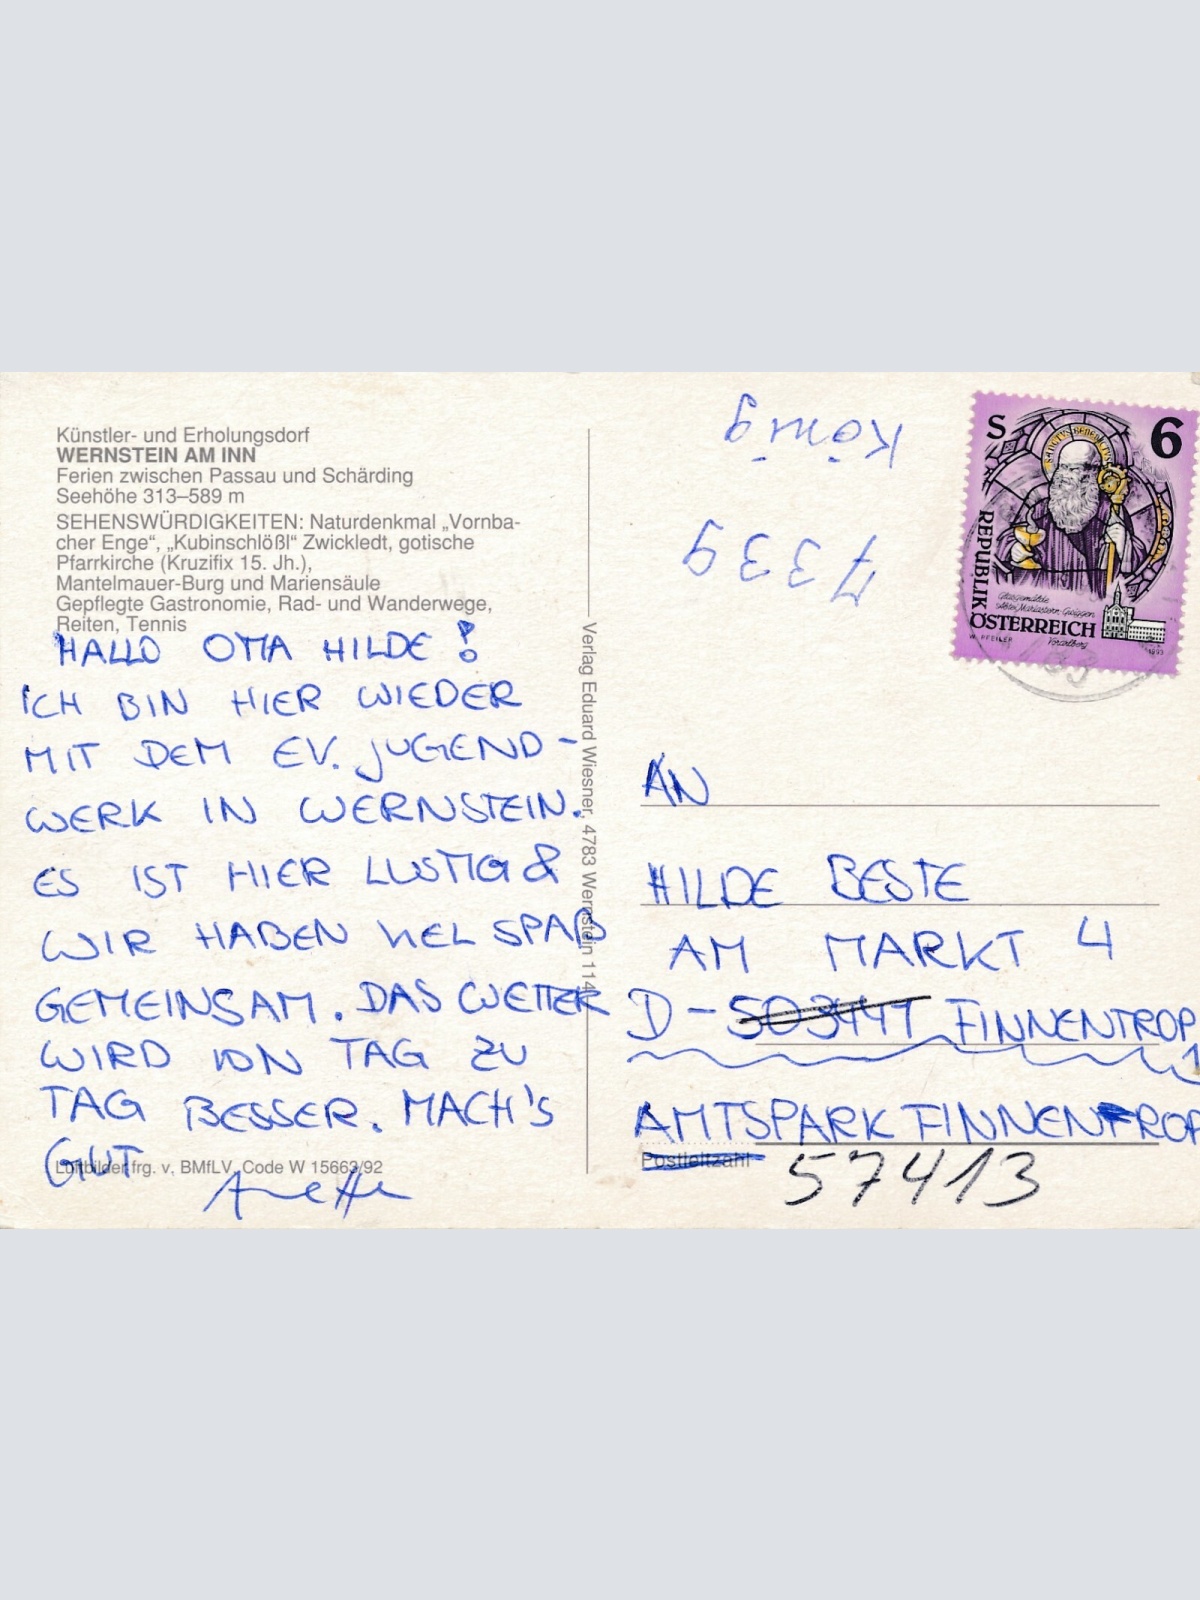 Künstler- und Erholungsdorf
WERNSTEIN AM INN
Ferien zwischen Passau und Schärding
Seehöhe 313–589 m
SEHENSWÜRDIGKEITEN: Naturdenkmal „Vornba-
cher Enge“, „Kubinschlößl“ Zwickledt, gotische
Pfarrkirche (Kruzifix 15. Jh.),
Mantelmauer-Burg und Mariensäule
Gepflegte Gastronomie, Rad- und Wanderwege,
Reiten, Tennis
HALLO OMA HILDE!
ICH BIN HIER WIEDER
MIT DEM EV. JUGEND-
WERK IN WERNSTEIN.
ES IST HIER LUSTIG &
WIR HABEN VIEL SPAß
GEMEINSAM. DAS WETTER
WIRD VON TAG ZU
TAG BESSER. MACH'S
GUT
Luftbilder frg. v. BMfLV, Code W 15663/92
Annette
Verlag Eduard Wiesner, 4783 Wernstein 114
König
7339
S 6
SANCTUS BENEDICTUS
REPUBLIK
ÖSTERREICH
Glasgemälde
Abtei Mariastern-Gwiggen
Vorarlberg
W. PFEILER
1993
AN
HILDE BESTE
AM MARKT 4
D - FINNENTROP
1
AMTSPARK FINNENTROP
Postleitzahl
57413